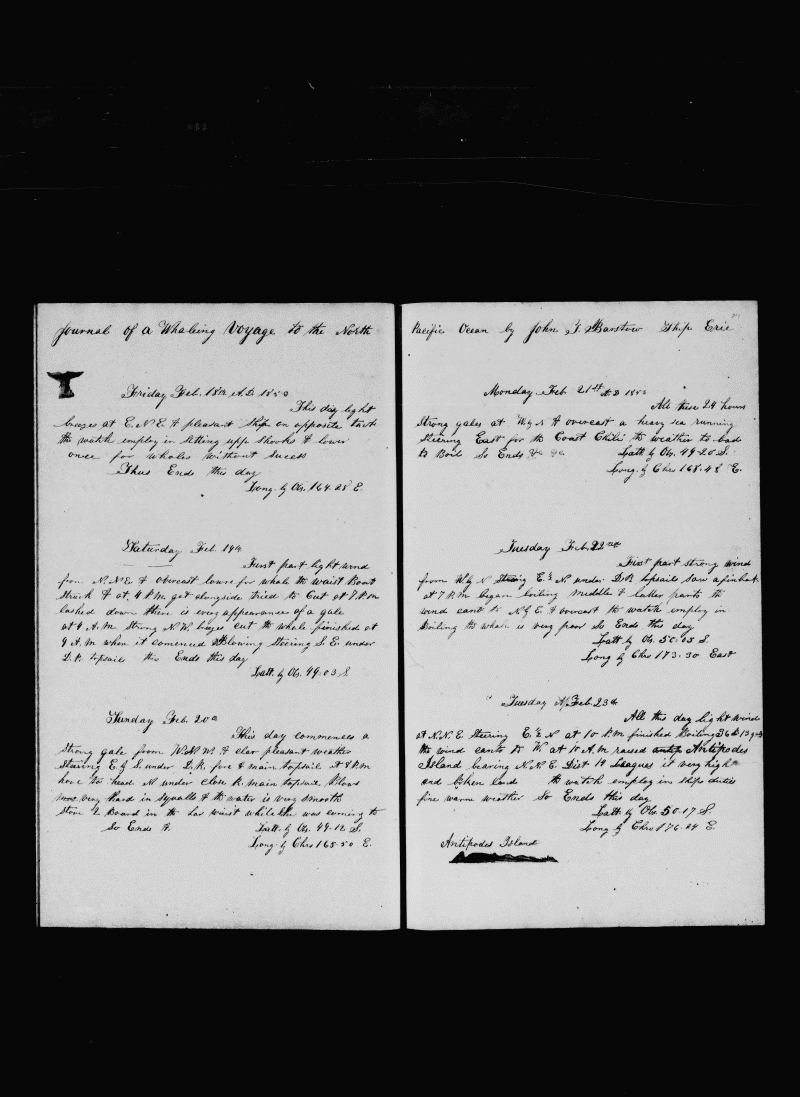 Journal of a Whaleing Voyage to the North
Friday Feb. 18th A.D. 1850
This day light
breezes at E.N.E. & pleasant Ship on opposite tacks
the watch employ in setting upp shooks & lower
once for whales without sucess
Thus Ends this day
Long. by Obs. 164.28 E.
Saturday Feb. 19th
First part light wind
from N.N.E. & overcast lowre for whale the waist Boat
Struck & at 4 P.M got alongside tried to Cut at 7 P.M
lashed down thire is evry appearances of a gale
at 4 A.M. Strong N.W. cut the whale finished at
9 A.M when it comenced Blowing Steering S.E. under
D.R. topsails this Ends this day
Latt. by Obs. 49.03 S.
Sunday Feb. 20th
This day commences a
Strong gale from W.N.W. & clar pleasant weather
Steering E by S. under D.R. fore & main topsail at 8 P.M
hove too head N under close R. main topsail Blows
very hard in squalls & the water is very smooth
Stove 2 Board in the Lar waist while she was coming to
So Ends &.
Latt. by Obs. 49.12 S.
Long. by Chro 165.50 E.
Pacific Ocean by John T. Barstow Ship Erie
Monday Feb 21st A.D 1850
All these 24 hours
Strong gales at W by N & overcast a heavy sea running
Steering East for the Coast Chili the weather to bad
to Boil So Ends &c &c
Latt by Obs. 49.20 S.
Long. by Chro 168.48 E.
Tuesday Feb. 22nd
First part strong wind
from W by N Steering E by N. under D.R topsails Saw a finback
at 7 P.M. began boiling middle & latter parts the
wind cants to N by E & overcast the watch employ in
Boiling the whale is very poor So Ends this day
Latt by Ob. 50.05 S.
Long by Chro 173.30 East
Tuesday Feb. 23th
All this day light winds
at N.N.E Steering E by N at 10 P.M finished Boiling 36 b
the wind cants to W. at 10 A.M raised Antipodes
Island bearing N.N.E. Dist 14 Leagues it very high
and land the watch employ in ships duties
fine warm weather So Ends this day
Latt by Obs. 50.17 S.
Long by Chro 176.24 E.
Antipodes Island